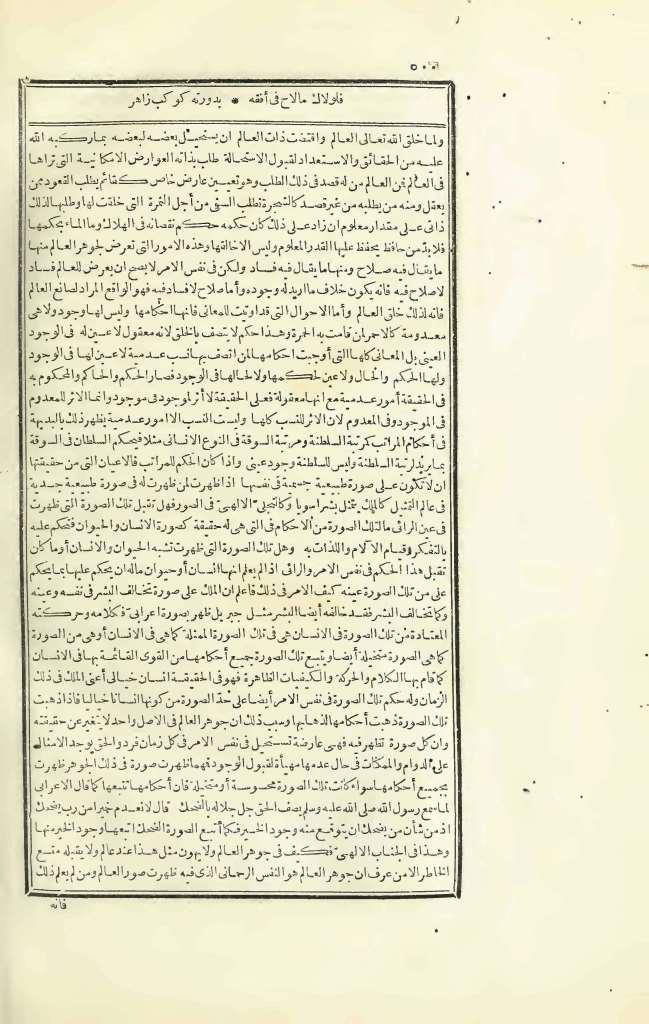 ٥٠٠
فلولاك مالاح فى أفقه * بدورته كوكب زاهر
ولما خلق الله تعالى العالم واقتضت ذات العالم ان يستحيل بعضه لبعضه بما ركبه الله
عليه من الحقائق والاستعداد لقبول الاستحالة طلب بذاته العوارض الامكانية التى تراها
فى العالم فمن العالم من له قصد فى ذلك الطلب وهو تعيين عارض خاص كقائم يطلب القعود ممن
يعقل ومنه من يطلبه من غير قصد كالشجرة تطلب السقى من أجل الثمرة التى خلقت لها وطلبها لذلك
ذاتى على مقدار معلوم ان زاد على ذلك كان حكمه حكم نقصانه فى الهلاك وما الماء بحكمها
فلابد من حافظ يحفظ عليها القدر المعلوم وليس الا خالقها وهذه الامور التى تعرض لجوهر العالم منها
ما يقال فيه صلاح ومنها ما يقال فيه فساد ولكن فى نفس الامر لا يصح ان يعرض للعالم فساد
لا صلاح فيه فانه يكون خلاف ما اريد له وجوده وأما صلاح لا فساد فيه فهو الواقع المراد لصانع العالم
فانه لذلك خلق العالم وأما الاحوال التى قد اوتيت للمعانى فانها أحكامها وليس لها وجود ولا هى
معدومة كالاحمر لمن قامت به الحمرة وهذا حكم لا يتصف بالخلق لانه معقول لا عين له فى الوجود
العينى بل المعانى كلها التى أوجبت احكامها لمن اتصف بها نسب عدمية لا عين لها فى الوجود
ولها الحكم والحال ولا عين لحكمها ولا لحالها فى الوجود فصار الحكم والحاكم والمحكوم به
فى الحقيقة أمور عدمية مع انها معقولة فعلى الحقيقة لا أثر لموجود فى موجود وانما الاثر للمعدوم
فى الموجود وفى المعدوم لان الاثر للنسب كلها وليست النسب الا امور عدمية يظهر ذلك بالبديهة
فى أحكام المراتب كمرتبة السلطنة ومرتبة السوقة فى النوع الانسانى مثلا فيحكم السلطان فى السوقة
بما يريد رتبة السلطنة وليس للسلطنة وجود عينى واذا كان الحكم للمراتب فالاعيان التى من حقيقتها
ان لا تكون على صورة طبيعية جسمية فى نفسها اذا ظهرت لمن ظهرت له فى صورة طبيعية جسدية
فى عالم التمثيل كالملك يتمثل بشرا سويا وكالتجلى الالهى فى الصور فهل تقبل تلك الصورة التى ظهرت
فى عين الرائى ما لتلك الصورة من الأحكام فى التى هى له حقيقة كصورة الانسان والحيوان فتحكم عليه
بالتفكر وقيام الآلام واللذات به وهل تلك الصورة التى ظهرت تشبه الحيوان والانسان أو ما كان
تقبل هذا الحكم فى نفس الامر والرائى اذا لم يعلم انها انسان أو حيوان ماله ان يحكم عليها بما يحكم
على من تلك الصورة عينه كيف الامر فى ذلك فاعلم ان الملك على صورة تخالف البشر فى نفسه وعينه
وكما تخالف البشر فقد خالفه أيضا البشر مثل جبريل ظهر بصورة اعرابى فكلامه وحركته
المعتادة من تلك الصورة فى الانسان هى فى تلك الصورة الممثلة كما هى فى الانسان أو هى من الصورة
كما هى الصورة متخيلة أيضا ويتبع تلك الصورة جميع أحكامها من القوى القائمة بها فى الانسان
كما قام بها الكلام والحركة والكيفيات الظاهرة فهو فى الحقيقة انسان خيالى أعنى الملك فى ذلك
الزمان وله حكم تلك الصورة فى نفس الامر أيضا على حد الصورة من كونها انسانا خياليا فاذا ذهبت
تلك الصورة ذهبت أحكامها لذهابها وسبب ذلك ان جوهر العالم فى الاصل واحد لا يتغير عن حقيقته
وان كل صورة تظهر فيه فهى عارضة تستحيل فى نفس الامر فى كل زمان فرد والحق يوجد الامثال
على الدوام والممكنات فى حال عدمها مهيأة لقبول الوجود فمهما ظهرت صورة فى ذلك الجوهر ظهرت
بجميع أحكامها سواء كانت تلك الصورة محسوسة أو متخيلة فان أحكامها تتبعها كما قال الاعرابى
لما سمع رسول الله صلى الله عليه وسلم يصف الحق جل جلاله بالضحك قال لا نعدم خيرا من رب يضحك
اذ من شأن من يضحك ان يتوقع منه وجود الخير فكما أتبع الصورة الضحك اتبعها وجود الخير منها
وهذا فى الجناب الالهى فكيف فى جوهر العالم ولا يهون مثل هذا عند عالم ولا يقبله متسع
الخاطر الا من عرف ان جوهر العالم هو النفس الرحمانى الذى فيه ظهرت صور العالم ومن لم يعلم ذلك
فانه